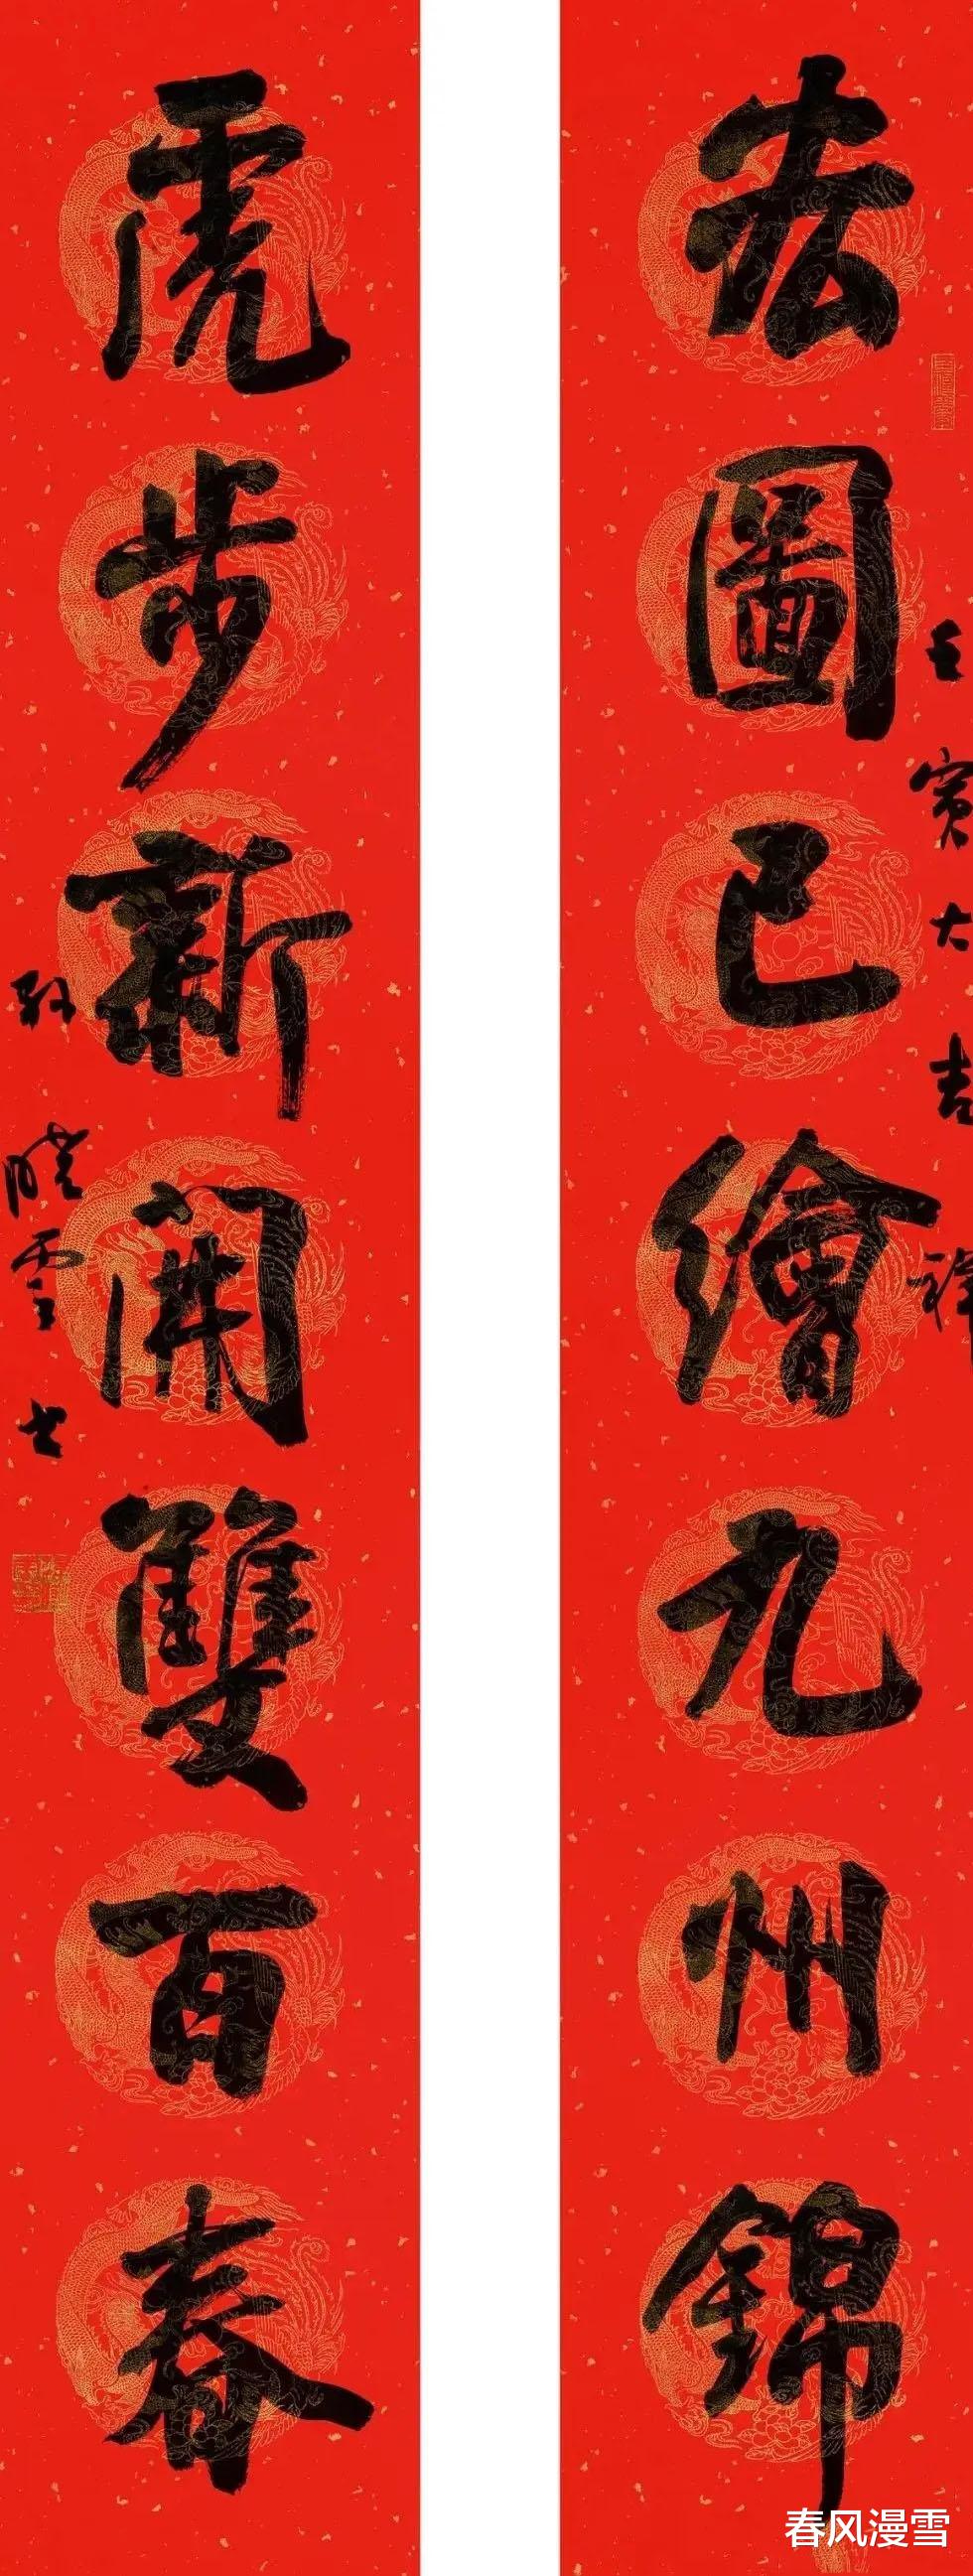 宏圖已繪九州錦
壬寅大吉祥
虎步新開雙百春
孫曉雲書
春风漫雪